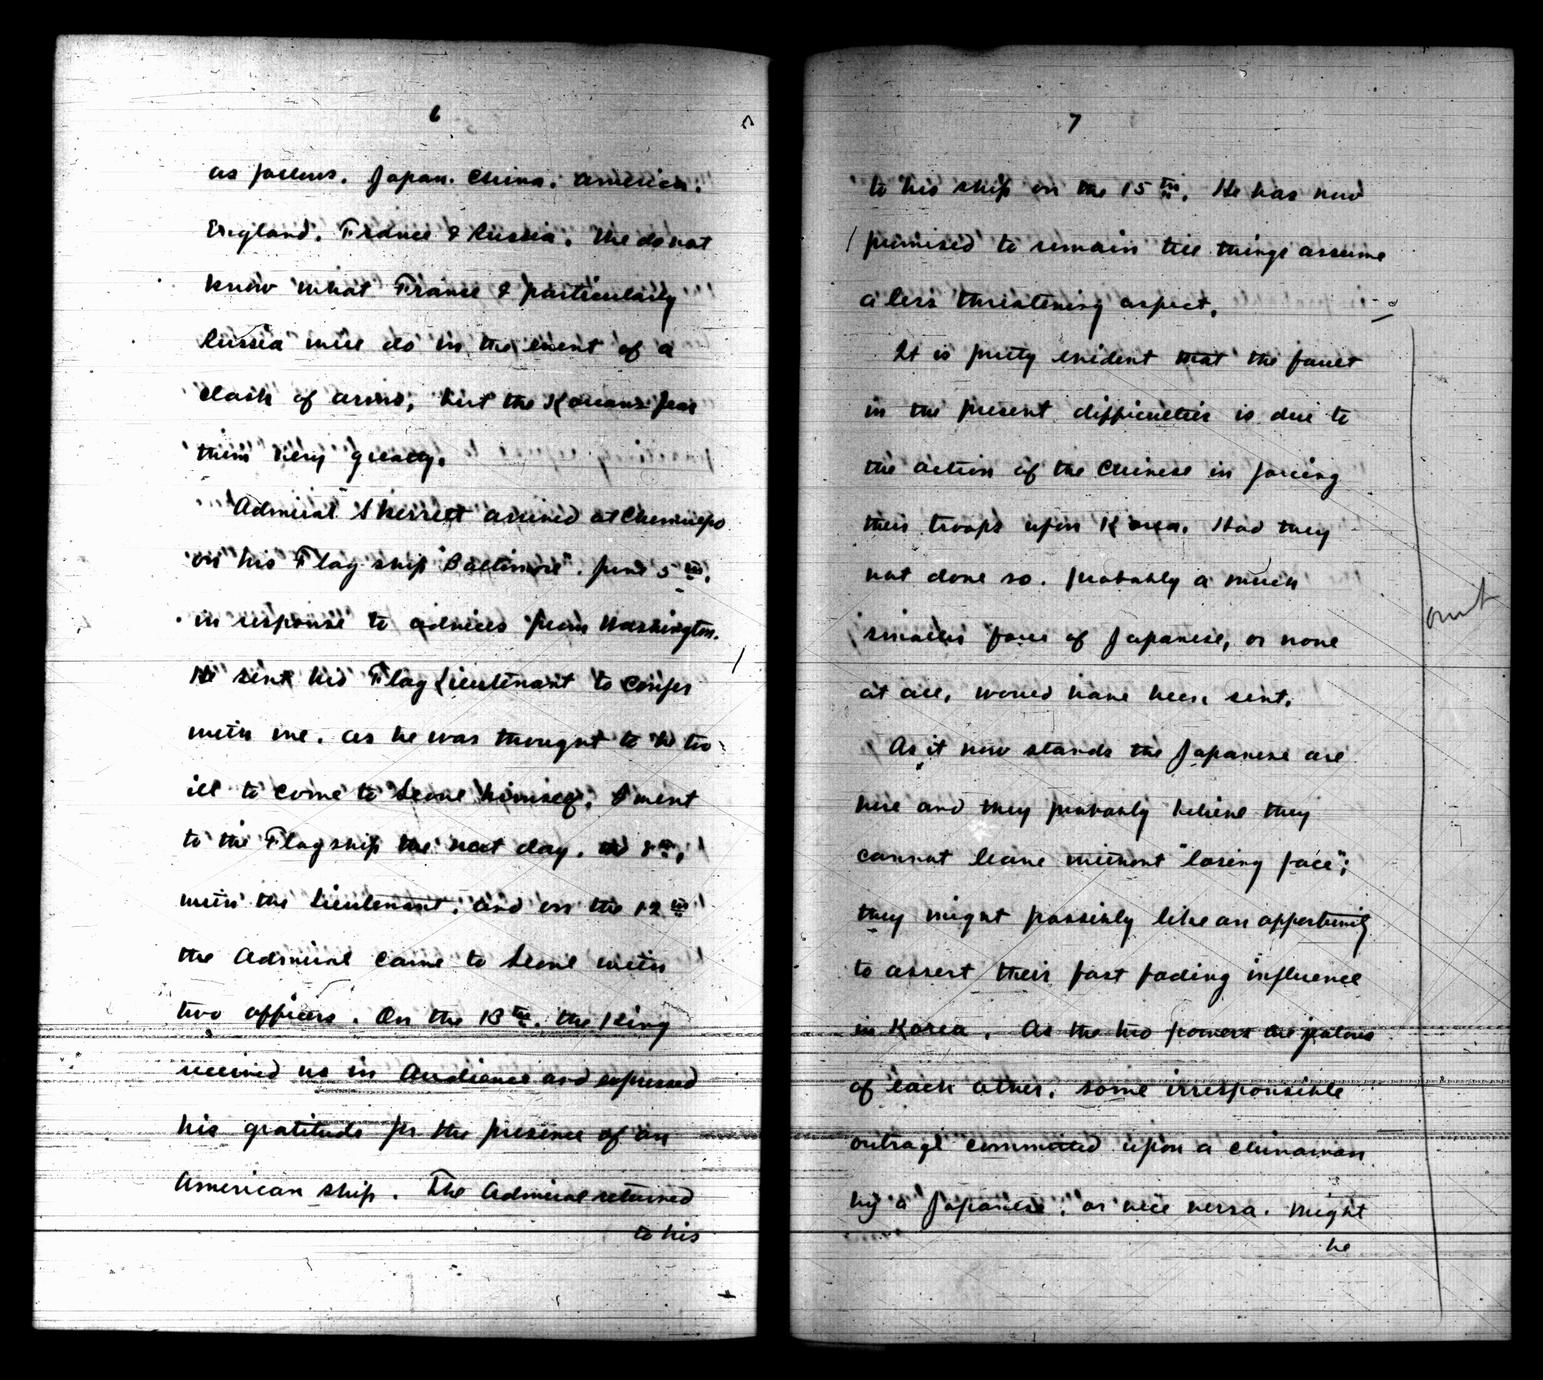 6
as follows. Japan. China. America.
England. France & Russia. We do not
know what France & particularly
Russia will do in the event of a
clash of arms, but the Koreans fear
them very greatly.
Admiral Skerrett arrived at Chemulpo
on his Flag ship "Baltimore". June 5th.
in response to advices from Washington.
He sent his Flag Lieutenant to confer
with me. as he was thought to be too
ill to come to Seoul himself. I went
to the Flagship the next day. 8th,
with the Lieutenant. and on the 12th
the Admiral came to Seoul with
two officers. On the 13th. the King
received us in Audience and expressed
his gratitude for the presence of an
American ship. The Admiral returned
to his
7
to his ship on the 15th. He has now
promised to remain till things assume
a less threatening aspect.
It is pretty evident that the fault
in the present difficulties is due to
the action of the Chinese in forcing
their troops upon Korea. Had they
not done so. probably a much
smaller force of Japanese, or none
at all, would have been sent.
As it now stands the Japanese are
here and they probably believe they
cannot leave without "losing face";
they might possibly like an opportunity
to assert their fast fading influence
in Korea. As the two powers are jealous
of each other. some irresponsible
outrage committed upon a Chinaman
by a Japanese. or vice versa. might
be
omit